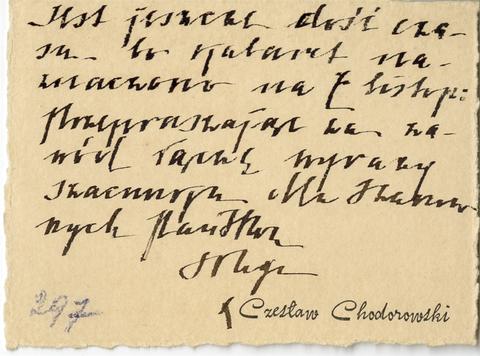 Jest jeszcze dość cza-
su bo kabaret na-
znaczono na 7 listop:
Przepraszając za za-
wód łączę wyrazy
szacunku dla Szanow
nych Państwa
297
Czesław Chodorowski